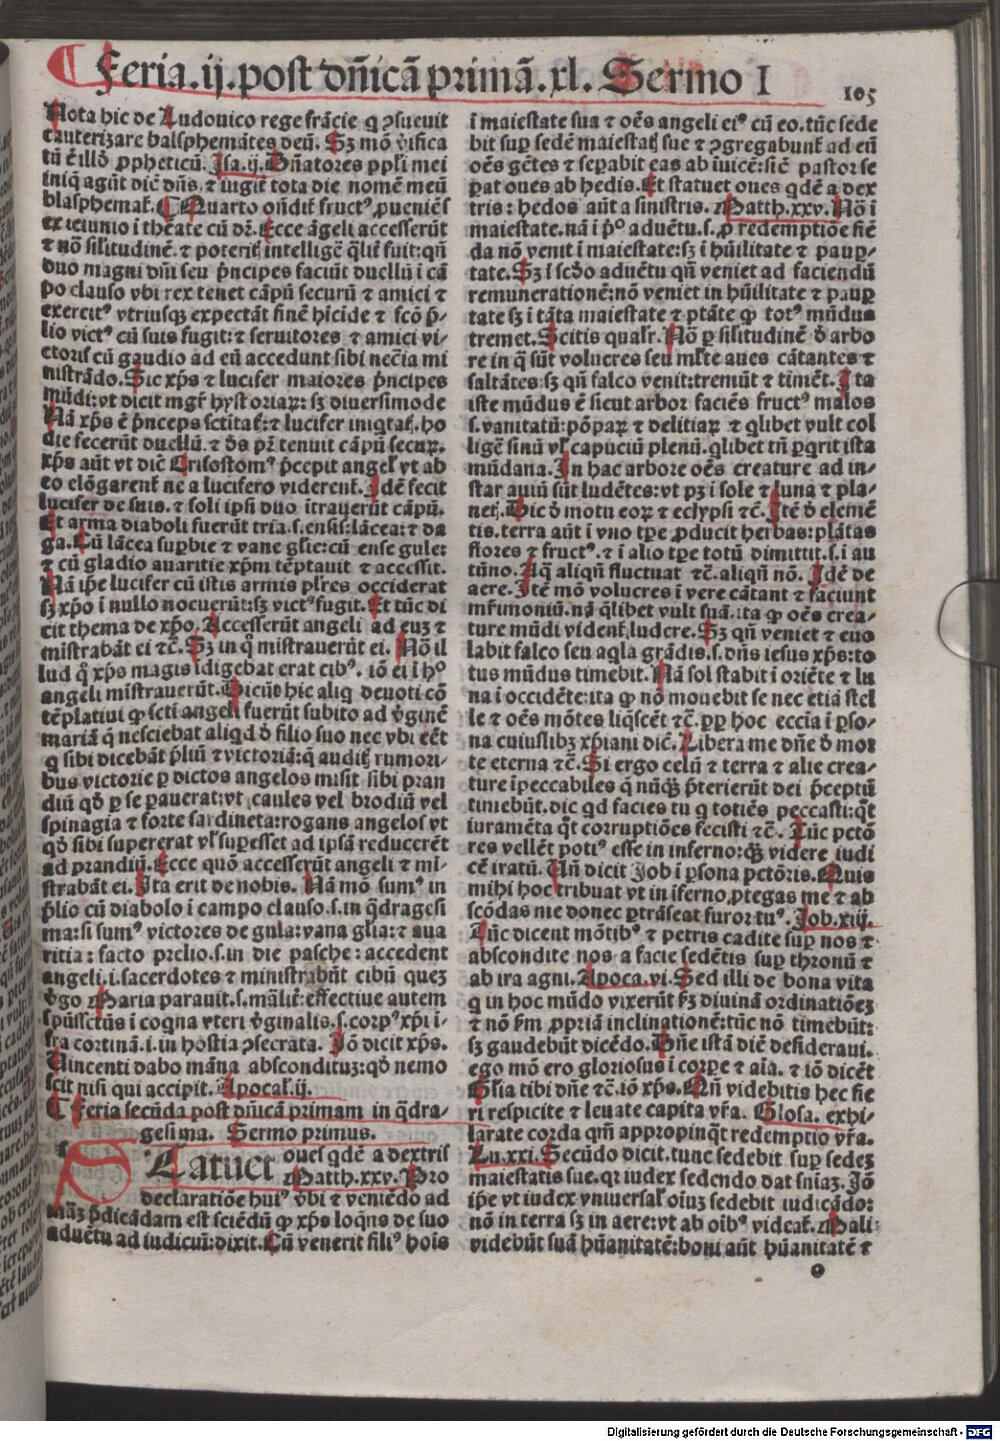 ¶ Feria.ij.post dñicã primã.xl. Sermo I
105
Nota hic de Ludouico rege frãcie q ꝯsueuit
cauterizare balsphemãtes deũ. Sꝫ mõ v̓ificať
tñ ẽ illď ꝓpheticũ. Isa.ij. Dñatores ppľi mei
iniq̃ agũt dič dñs. ⁊ iugiť tota die nomẽ meũ
blasphemať. ¶ Quarto oñdiť fructꝰ ꝓueniẽs
ex ieiunio i thẽate cũ dȓ. Ecce ãgeli accesserũt
⁊ nõ siľitudinẽ. ⁊ poteriť intelligẽ q̃liť fuit: qñ
duo magni dñi seu p̃ncipes faciũt duellũ i cã
po clauso vbi rex tenet cãpũ securũ ⁊ amici ⁊
exercitꝰ vtriusqꝫ expectãt finẽ hicide ⁊ fcõ p̃-
lio victꝰ cũ suis fugit: ⁊ seruitores ⁊ amici vi-
ctoris cũ gaudio ad eũ accedunt sibi necĩa mi
nistrãdo. Sic xp̃s ⁊ lucifer maiores p̃ncipes
mũdi: vt dicit mgȓ hystoriaꝝ: sꝫ diuersimode
Nã xp̃s ẽ p̃nceps sctitať: ⁊ lucifer iniq̃tať. ho
die fecerũt duellũ. ⁊ ďs pȓ tenuit cãpũ secuꝝ.
xp̃s aũt vt dič Crisostomꝰ p̃cepit angeľ vt ab
eo elõgarenť ne a lucifero viderenť. Idẽ fecit
lucifer de suis. ⁊ soli ipsi duo itrauerũt cãpũ.
Et arma diaboli fuerũt tria.s.ensis: lãcea: ⁊ da
ga. Cũ lãcea supbie ⁊ vane gľie: cũ ense gule:
⁊ cũ gladio auaritie xp̃m tẽptauit ⁊ accessit.
Nã ip̃e lucifer cũ istis armis pľres occiderat
sꝫ xp̃o i nullo nocuerũt: sꝫ victꝰ fugit. Et tũc di
cit thema de xp̃o. Accesserũt angeli ad euꝫ ⁊
mistrabãt ei ⁊č. Sꝫ in q̊ mistrauerũt ei. Nõ il
lud q̊ xp̃s magis idigebat erat cibꝰ. iõ ei i hº
angeli mistrauerũt. Dicũt hic aliq̃ deuoti cõ
tẽplatiui ꝙ scti angeli fuerũt subito ad v̓ginẽ
mariã q̃ nesciebat aliqď ď filio suo nec vbi eẽt
q̃ sibi dicebãt p̃liũ ⁊ victoriã: q̃ audiť rumori-
bus victorie ꝑ dictos angelos misit sibi pran
diũ qď ꝑ se ꝑauerat: vt caules vel brodiũ vel
spinagia ⁊ forte sardineta: rogans angelos vt
qď sibi supererat vľ supesset ad ipsã reducerẽt
ad prandiũ. Ecce quõ accesserũt angeli ⁊ mi-
strabãt ei. Ita erit de nobis. Nã mõ sumꝰ in
p̃lio cũ diabolo i campo clauso.s.in q̃dragesi
ma: si sumꝰ victores de gula: vana gľia: ⁊ aua
ritia: facto prelio.s.in die pasche: accedent
angeli.i.sacerdotes ⁊ ministrabũt cibũ queꝫ
v̓go Maria parauit.s.mãliť: effectiue autem
spũssctũs i coq̃na vteri v̓ginalis.s.corpꝰ xp̃i i-
fra cortinã.i.in hostia ꝯsecrata. Iõ dicit xp̃s.
Vincenti dabo mãna absconditũ: qď nemo
scit nisi qui accipit. Apocaľ.ij.
¶ Feria secũda post dñicã primam in q̃dra-
gesima. Sermo primus.
STatuet oues qdẽ a dextris
Matth.xxv. Pro
declaratiõe huiꝰ v̓bi ⁊ veniẽdo ad
mãꝫ p̃dicãdam est sciẽdũ ꝙ xp̃s loq̃ns de suo
aduẽtu ad iudiciũ: dixit. Cũ venerit filiꝰ hoĩs
i maiestate sua ⁊ oẽs angeli eiꝰ cũ eo. tũc sede
bit suꝑ sedẽ maiestať sue ⁊ ꝯgregabunť ad eũ
oẽs gẽtes ⁊ seꝑabit eas ab iuicẽ: sič pastor se
ꝑat oues ab hedis. Et statuet oues qdẽ a dex
tris: hedos aũt a sinistris. Matth.xxv. Nõ i
maiestate. nã i pº aduẽtu.s.ꝓ redemptiõe fiẽ
da nõ venit i maiestate: sꝫ i hũilitate ⁊ pauꝑ-
tate. Sꝫ i scďo aduẽtu qñ veniet ad faciendũ
remunerationẽ: nõ veniet in hũilitate ⁊ pauꝑ
tate sꝫ i tãta maiestate ⁊ p̃tãte ꝙ totꝰ mũdus
tremet. Scitis qualȓ. Nõ ꝑ siľitudinẽ ď arbo
re in q̃ sũt volucres seu mľte aues cãtantes ⁊
saltãtes: sꝫ qñ falco venit: tremũt ⁊ timẽt. Ita
iste mũdus ẽ sicut arbor faciẽs fructꝰ malos
.s.vanitatũ: põpaꝝ ⁊ delitiaꝝ ⁊ qlibet vult col
ligẽ sinũ vľ capuciũ plenũ. qlibet tñ pq̃rit ista
mũdana. In hac arbore oẽs creature ad in-
star auiũ sũt ludẽtes: vt pꝫ i sole ⁊ luna ⁊ pla-
neť. Dic ď motu eoꝝ ⁊ eclypsi ⁊č. Itẽ ď elemẽ
tis. terra aũt i vno tꝑe ꝓducit herbas: plãtas
flores ⁊ fructꝰ. ⁊ i alio tꝑe totũ dimittit.s.i au
tũno. Aq̃ aliqñ fluctuat ⁊č. aliqñ nõ. Idẽ de
aere. Itẽ mõ volucres i vere cãtant ⁊ faciunt
mȓimoniũ. nã q̃libet vult suã. ita ꝙ oẽs crea-
ture mũdi videnť ludere. Sꝫ qñ veniet ⁊ euo
labit falco seu aq̃la grãdis.s.dñs iesus xp̃s: to
tus mũdus timebit. Nã sol stabit i oriẽte ⁊ lu
na i occidẽte: ita ꝙ nõ mouebit se nec etiã stel
le ⁊ oẽs mõtes liq̃scẽt ⁊č. ꝓꝑ hoc ecc̃ia i ꝑso-
na cuiuslibꝫ xp̃iani dič. Libera me dñe ď mor
te eterna ⁊č. Si ergo celũ ⁊ terra ⁊ alie crea-
ture ĩpeccabiles q̃ nũq̃ꝫ p̃terierũt dei p̃ceptũ
timebũt. dic qd facies tu q totiẽs peccasti: q̃t
iuramẽta q̃t corruptiões fecisti ⁊č. Tũc pctõ
res vellẽt potiꝰ esse in inferno: q̃ꝫ videre iudi
cẽ iratũ. Uñ dicit Job i ꝑsona pctõris. Quis
mihi hoc tribuat vt in iferno ꝓtegas me ⁊ ab
scõdas me donec ꝑtrãseat furor tuꝰ. Job.xiij.
Tũc dicent mõtibꝰ ⁊ petris cadite suꝑ nos ⁊
abscondite nos a facie sedẽtis suꝑ thronũ ⁊
ab ira agni. Apoca.vi. Sed illi de bona vita
q in hoc mũdo vixerũt ẜꝫ diuinã ordinatiõeꝫ
⁊ nõ ẜm ꝓpriã inclinationẽ: tũc nõ timebũt:
sꝫ gaudebũt dicẽdo. Dñe istã diẽ desideraui.
ego mõ ero gloriosus i corꝑe ⁊ aĩa. ⁊ iõ dicẽt
Gľia tibi dñe ⁊č. iõ xp̃s. Qñ videbitis hec fie
ri respicite ⁊ leuate capita vȓa. Glosa. exhi-
larate corda qm̃ appropinq̃t redemptio vȓa.
Lu.xxi. Secũdo dicit. tunc sedebit suꝑ sedeꝫ
maiestatis sue. qꝛ iudex sedendo dat sniaꝫ. Iõ
ip̃e vt iudex vniuersaľ oiuꝫ sedebit iudicãdo:
nõ in terra sꝫ in aere: vt ab oibꝰ videať. Mali
videbũt suã hũanitatẽ: boni aũt hũanitatẽ ⁊
o
Digitalisierung gefördert durch die Deutsche Forschungsgemeinschaft - DFG